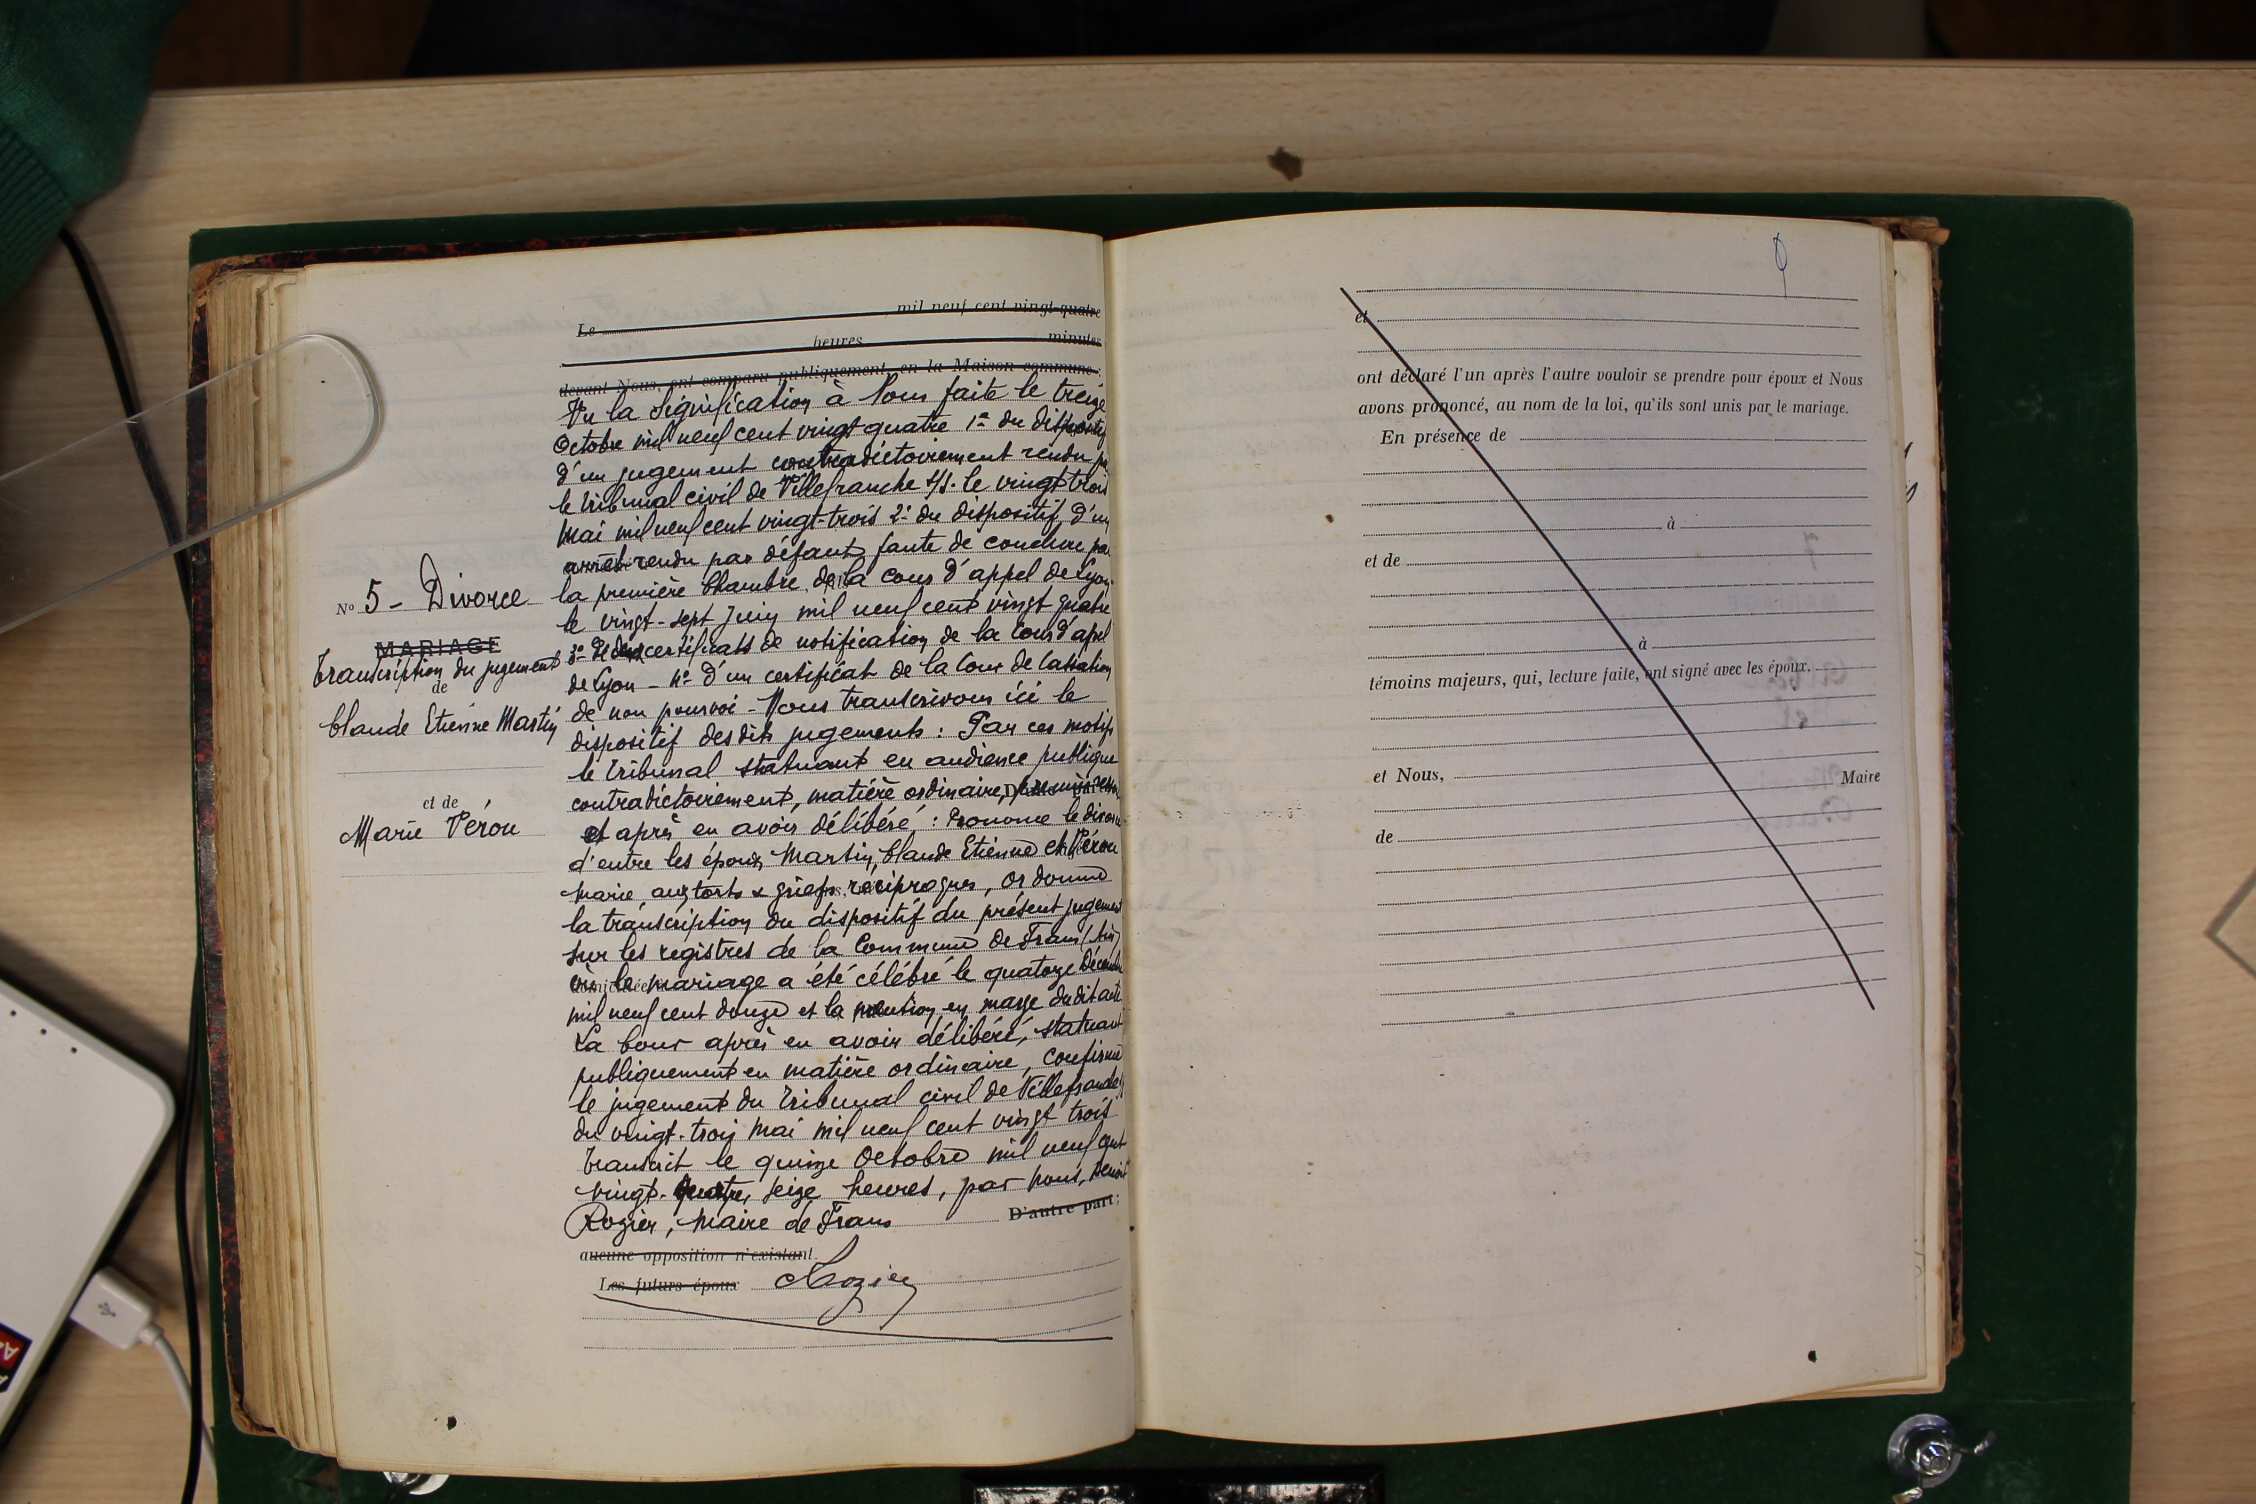 Le mil neuf cent vingt-quatre
heures minutes
devant Nous, ont comparu publiquement en la Maison commune :
Vu la Signification à Nous faite le treize
Octobre mil neuf cent vingt quatre 1º du dispositif
d'un jugement contradictoirement rendu par
le Tribunal civil de Villefranche s/s. le vingt trois
Mai mil neuf cent vingt-trois 2º du dispositif d'un
arrêt rendu par défaut faute de conclure par
la première Chambre de la Cour d'appel de Lyon
le vingt-sept Juin mil neuf cent vingt quatre
3º de deux certificats de notification de la Cour d'appel
de Lyon - 4º d'un certificat de la Cour de Cassation
de non pourvoi - Nous transcrivons ici le
dispositif desdits jugements : Par ces motifs
le Tribunal statuant en audience publique
contradictoirement, matière ordinaire,
et après en avoir délibéré : Prononce le divorce
d'entre les époux Martin, Claude Etienne et Véron
Marie, aux torts & griefs réciproques, ordonne
la transcription du dispositif du présent jugement
sur les registres de la Commune de Frans (Ain)
où le mariage a été célébré le quatorze Décembre
mil neuf cent douze et la mention en marge dudit acte
La Cour après en avoir délibéré, statuant
publiquement en matière ordinaire, confirme
le jugement du Tribunal civil de Villefranche
du vingt-trois Mai mil neuf cent vingt trois
Transcrit le quinze Octobre mil neuf cent
vingt-quatre, seize heures, par nous, Benoit
Rozier, Maire de Frans D'autre part ;
aucune opposition n'existant.
Les futurs époux Rozier
Nº 5 - Divorce
MARIAGE
Transcription du jugement
de
Claude Etienne Martin
et de
Marie Véron
et
ont déclaré l'un après l'autre vouloir se prendre pour époux et Nous
avons prononcé, au nom de la loi, qu'ils sont unis par le mariage.
En présence de
à
et de
à
témoins majeurs, qui, lecture faite, ont signé avec les époux.
et Nous, Maire
de